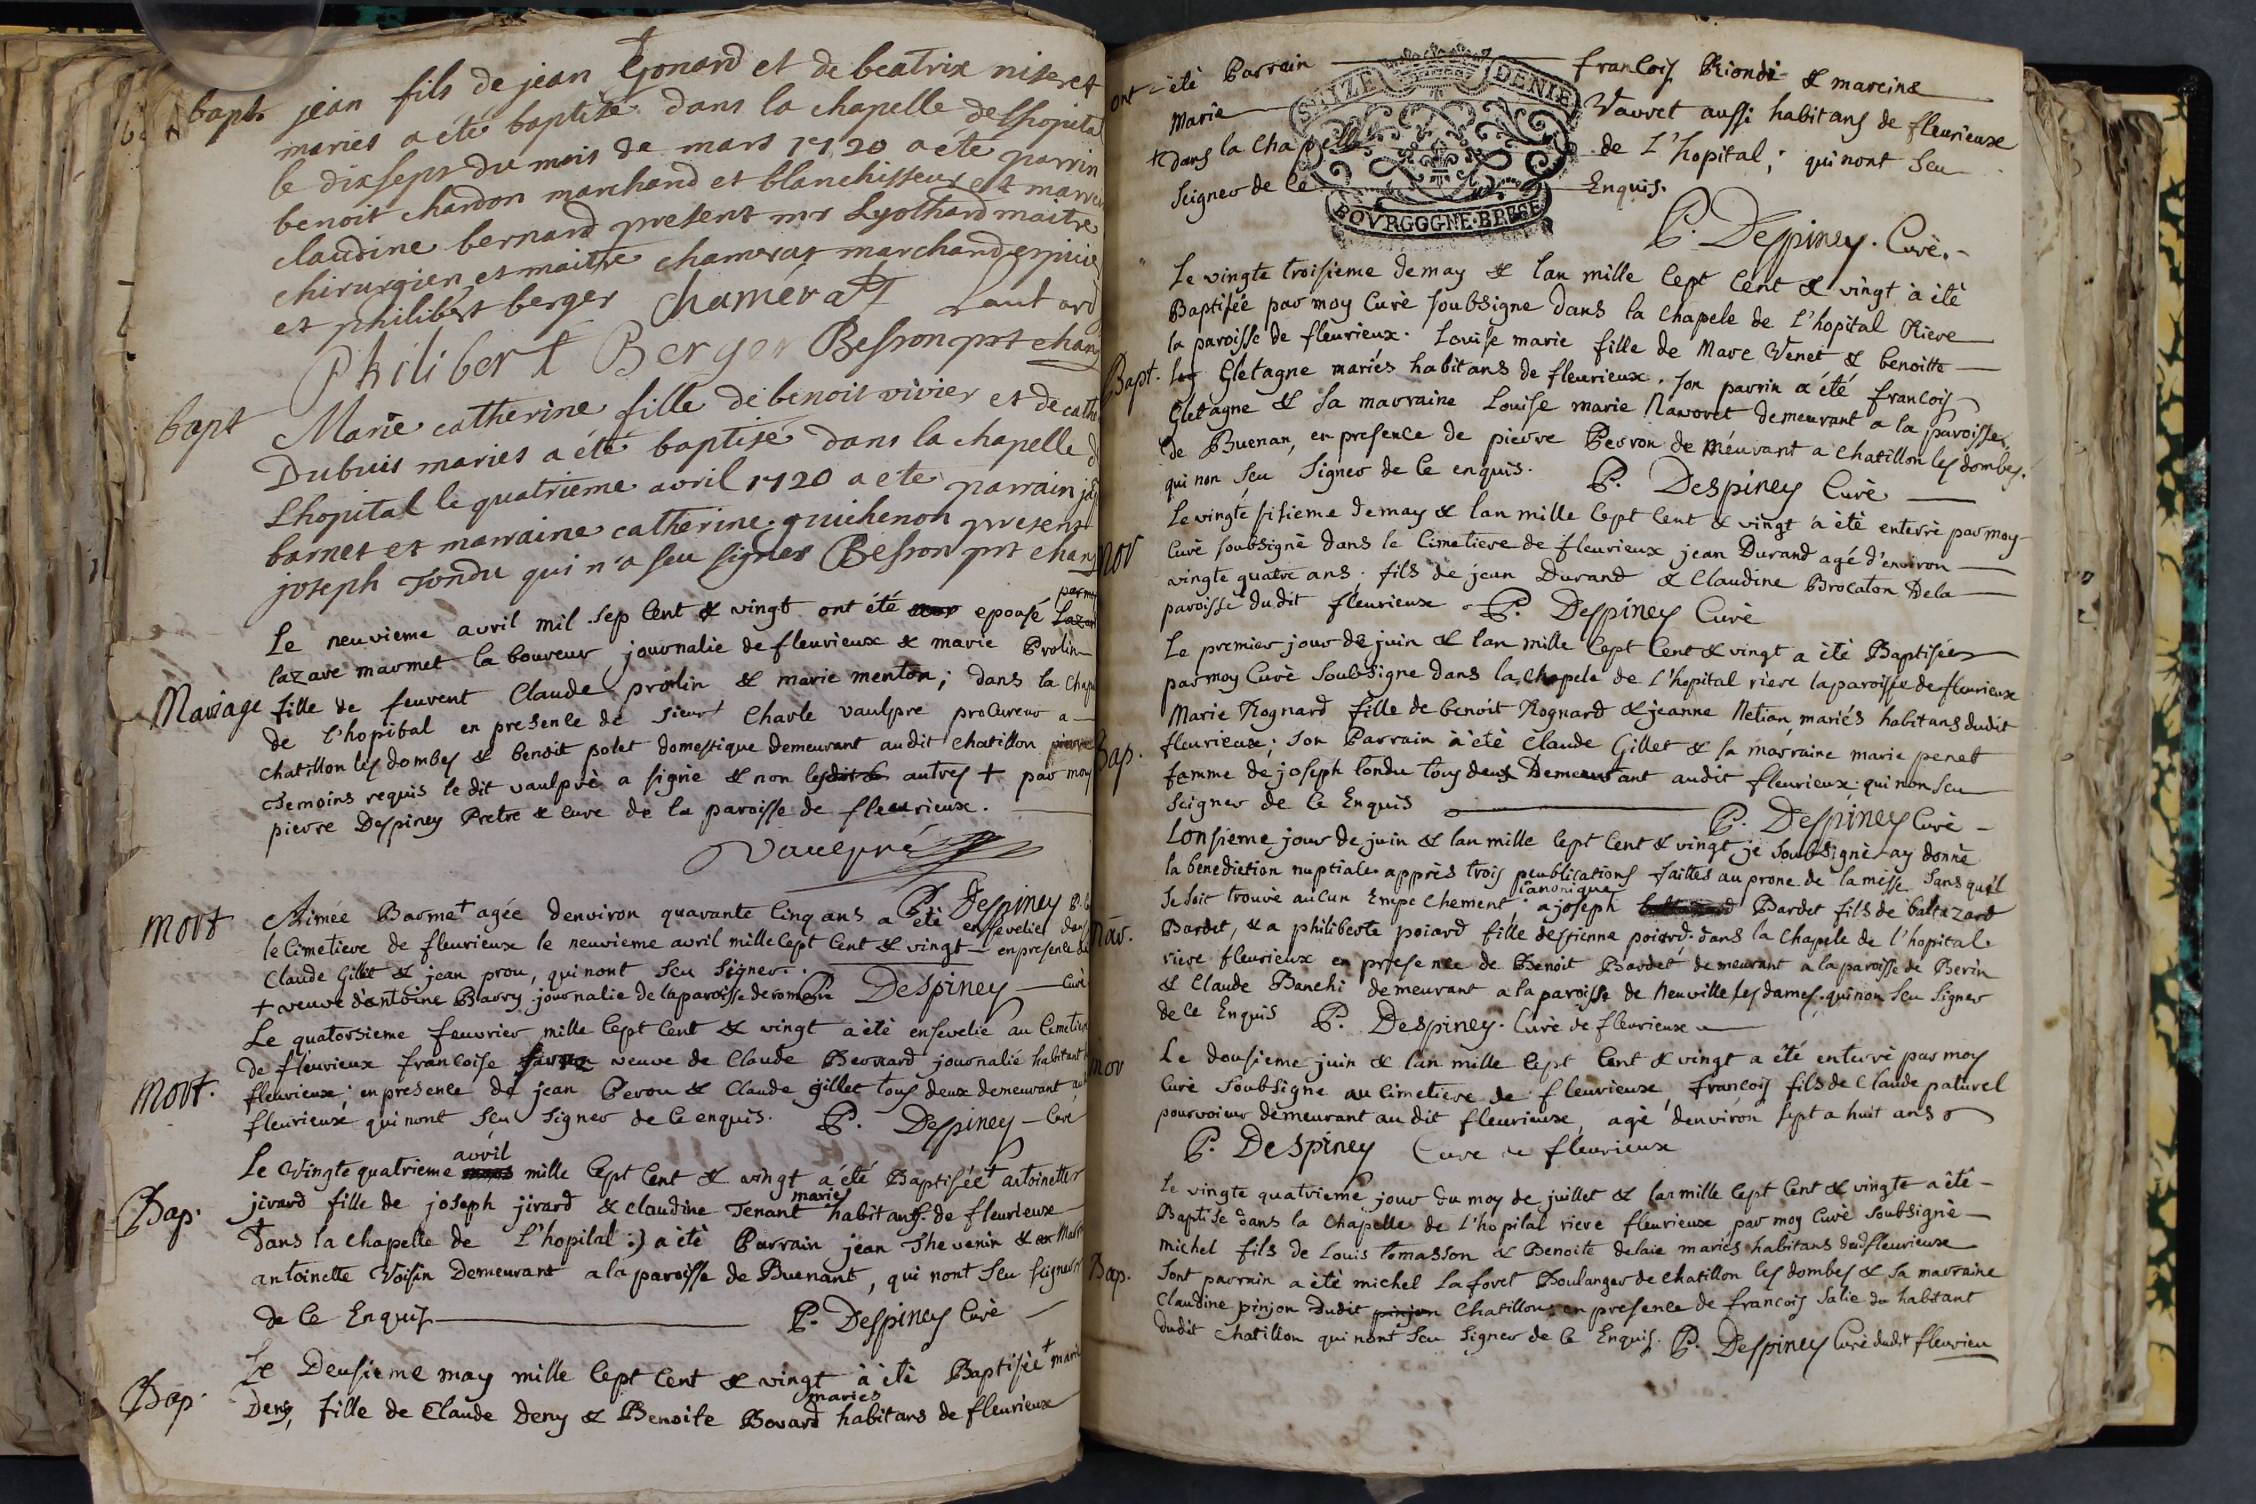 bapt jean fils de jean Gonard et de beatrix niseret
maries a été baptisé dans la chapelle de lhopita
le dix sept du mois de mars 1720 a été parrin
benoit chardon marchand et blanchisseur et marre
claudine bernard present mr Lyothard maitre
chirurgien et maitre chamerat marchand epicie
et philibert berger Chamérat
Philibert Berger Besson prt
bapt Marie catherine fille de benoit vivier et de cathe
Dubuis maries a été baptisé dans la chapelle d
Lhopital le quatrieme avril 1720 a ete parrain
barnet et marraine catherine guichenon present
joseph Tondu qui n'a seu signer Besson prt
Le neuvieme avril mil sep cent & vingt ont été epousé
par moy
lazare marmet laboureur journalie de fleurieux & marie Prolin
Mariage fille de feuvent Claude prolin & marie menton; dans la Chap
de l'hopital en presence de sieur Charle vaulpre procureur a
chatillon les dombes & benoit polet domestique demeurant audit chatillon
temoins requis le dit vaulpré a signé & non autres + par moy
pierre Despiney Pretre & cure de la paroisse de fleurieux.
Vaulpré
P. Despiney
mort Aimée Barmet agée denviron quarante cinq ans a été ensevelie dans
le cimetiere de fleurieux le neuvieme avril mille sept cent & vingt en presence de
Claude Gillet & jean prou, qui nont seu signer.
+ veuve dantoine Barry journalie de la paroisse de P. Despiney Curé
Le quatorsieme feuvrier mille sept cent & vingt a été ensevelie au Cimetiere
de fleurieux francoise veuve de Claude Berrard journalié habitant
mort. fleurieux; en presence de jean Perou & Claude gillet tous deux demeurant au
fleurieux qui nont seu signer de ce enquis. P. Despiney Cure
avril
Le Vingte quatrieme mille sept cent & vingt a été Baptisée + antoinette
maries
Bap. jivard fille de joseph jivard & claudine Tenant habitans de fleurieux
+ dans la chapelle de L'hopital :) a été Parrain jean Thevenin & Marr
antoinette Voisin Demeurant a la paroisse de Buenant, qui nont seu seigner
de ce Enquis P. Despiney Curè
Le Deusieme may mille sept cent & vingt à èté Baptisèe + marie
maries
Bap. Deny, fille de Claude Deny & Benoite Bovard habitans de fleurieux
ont été Parrain francois Riondi & mareine
Marie Vavret aussi habitans de fleurieux
+ dans la chapelle de L'hopital; qui nont seu
seigner de ce Enquis.
SEIZE DENIE
BOVRGOGNE·BRESE
P. Despiney. Curè.
Le vingte troisieme de may & lan mille sept cent & vingt à été
Baptisée par moy Curè soubsigne dans la chapele de L'hopital Riere
la paroisse de fleurieux. Louise marie fille de Marc Venet & benoitte
Bapt. Gletagne mariés habitans de fleurieux. Son parrin a été francois
Gletagne & sa marraine Louise marie Navoret demeurant a la paroisse
de Buenan, en presence de pierre Perron de méurant a chatillon les dombes.
qui non seu signer de ce enquis. P. Despiney Curè
Le vingte sisieme de may & lan mille sept cent & vingt a été enterrè par moy
mor Curè soubsignè dans le Cimetiere de fleurieux jean Durand agé d'environ
vingte quatre ans; fils de jean Durand & Claudine Brocaton Dela
paroisse dudit fleurieux P. Despiney Curè
Le premier jour de juin & lan mille sept cent & vingt a été Baptisée
par moy Curè soubsigne dans la chapele de L'hopital riere la paroisse de fleurieux
Marie Rognard fille de benoit Rognard & jeanne Netian mariés habitans dudit
Bap. fleurieux; son Parrain à été Claude Gillet & sa marraine marie penet
femme de joseph tondu tous deux Demeurant audit fleurieux qui non seu
seigner de ce Enquis P. Despiney Curè
Lonsieme jour de juin & lan mille sept cent & vingt je soubsignè ay donnè
la benediction nuptiale apprès trois peublications faittes au prone de la messe sans quil
canonique
se soit trouvè aucun Empechement a joseph Bardet fils de baltazard
mar. Bardet, & a philiberte poiard fille destienne poiard. dans la chapele de l'hopital
riere fleurieux en presence de Benoit Bardet demeurant a la paroisse de Berin
& Claude Banchi demeurant a la paroisse de neuville les dames. qui non seu signer
de ce Enquis P. Despiney. Curè de fleurieux
Le dousieme juin & lan mille sept cent & vingt a été enterrè par moy
mor Curè soubsigne au cimetiere de fleurieux, francois fils de Claude paturel
pourvoieur demeurant au dit fleurieux, agè denviron sept a huit ans
P. Despiney Cure de fleurieux
Le vingte quatrieme jour du moy de juillet & lan mille sept cent & vingte a été
Baptise dans la chapelle de L'hopital riere fleurieux par moy Curè soubsignè
michel fils de Louis tomasson & Benoite delaie maries habitans dud fleurieux
Bap. sont parrain a été michel Laforet Boulanger de chatillon les dombes & sa marraine
Claudine pinjon dudit Chatillon en presence de francois Salie du habitant
dudit chatillon qui nont seu signer de ce Enquis. P. Despiney Curè dudit fleurieu